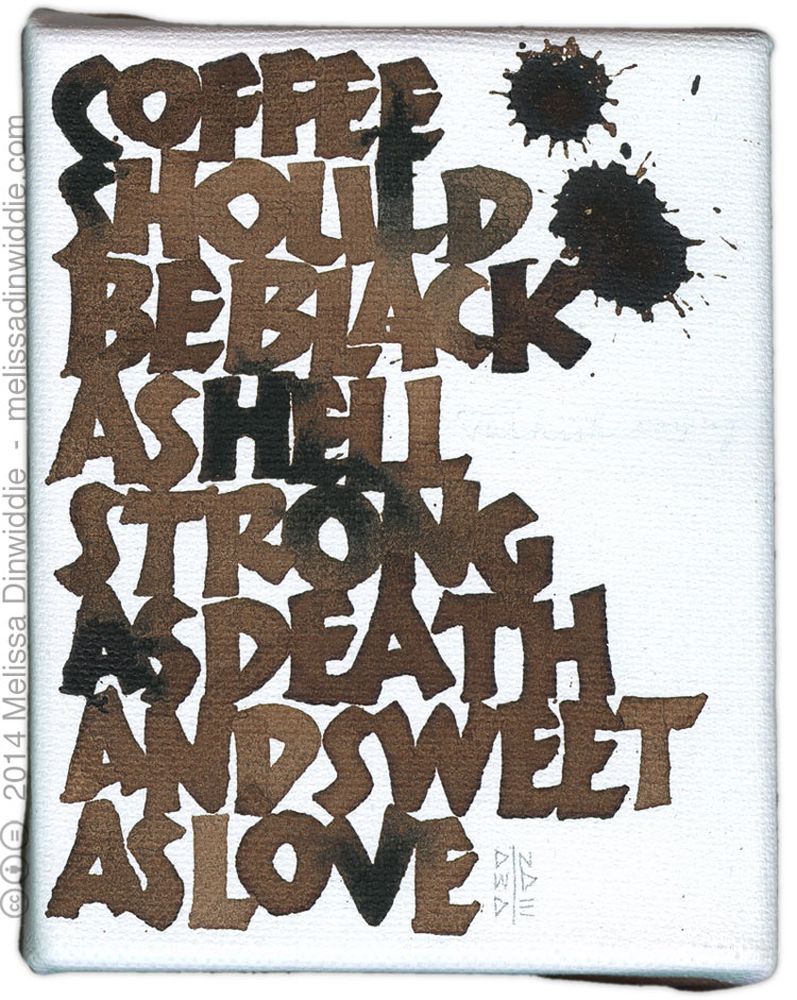 COFFEE
SHOULD
BE BLACK
AS HELL
STRONG
AS DEATH
AND SWEET
AS LOVE
© 2014 Melissa Dinwiddie - melissadinwiddie.com